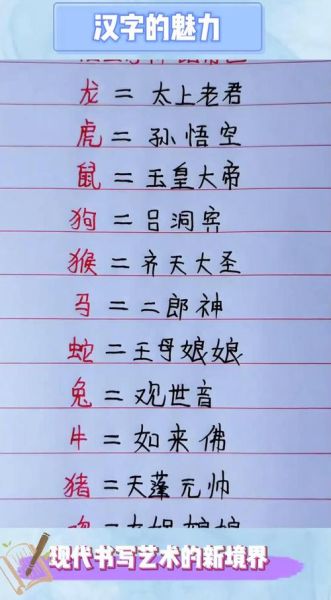 汉字的魅力
龙 = 太上老君
虎 = 孙悟空
鼠 = 玉皇大帝
狗 = 吕洞宾
猴 = 齐天大圣
马 = 二郎神
蛇 = 王母娘娘
兔 = 观世音
牛 = 如来佛
猪 = 天蓬元帅
现代书写艺术的新境界